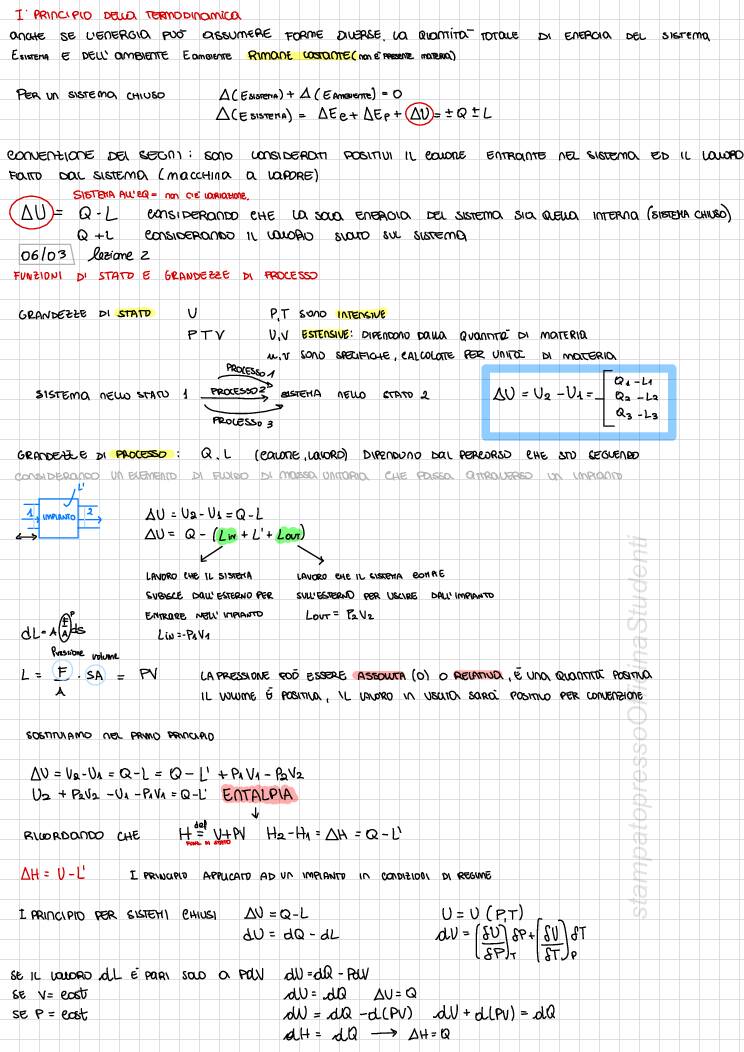 I° PRINCIPIO DELLA TERMODINAMICA
ANCHE SE L'ENERGIA PUÒ ASSUMERE FORME DIVERSE, LA QUANTITÀ TOTALE DI ENERGIA DEL SISTEMA
ESISTEMA E DELL'AMBIENTE EAMBIENTE RIMANE COSTANTE (NON È PRESENTE MATERIA)
PER UN SISTEMA CHIUSO Δ(ESISTEMA) + Δ(EAMBIENTE) = 0
Δ(ESISTEMA) = ΔEc + ΔEp + ΔU = ± Q ± L
CONVENZIONE DEI SEGNI: SONO CONSIDERATI POSITIVI IL CALORE ENTRANTE NEL SISTEMA ED IL LAVORO
FATTO DAL SISTEMA (MACCHINA A VAPORE)
SISTEMA ALL'EQ = NON C'È VARIAZIONE.
ΔU = Q - L CONSIDERANDO CHE LA SOLA ENERGIA DEL SISTEMA SIA QUELLA INTERNA (SISTEMA CHIUSO)
Q + L CONSIDERANDO IL LAVORO SVOLTO SUL SISTEMA
06/03 lezione 2
FUNZIONI DI STATO E GRANDEZZE DI PROCESSO
GRANDEZZE DI STATO U P,T SONO INTENSIVE
P T V U,V ESTENSIVE: DIPENDONO DALLA QUANTITÀ DI MATERIA
u,v SONO SPECIFICHE, CALCOLATE PER UNITÀ DI MATERIA
PROCESSO 1
SISTEMA NELLO STATO 1 PROCESSO 2 SISTEMA NELLO STATO 2
PROCESSO 3
ΔU = U2 - U1 = Q1 - L1
Q2 - L2
Q3 - L3
GRANDEZZE DI PROCESSO: Q, L (CALORE, LAVORO) DIPENDONO DAL PERCORSO CHE STO SEGUENDO
CONSIDERANDO UN ELEMENTO DI FLUIDO DI MASSA UNITARIA CHE PASSA ATTRAVERSO UN IMPIANTO
L'
1 IMPIANTO 2
ΔU = U2 - U1 = Q - L
ΔU = Q - (Lin + L' + Lout)
LAVORO CHE IL SISTEMA LAVORO CHE IL SISTEMA COMPIE
SUBISCE DALL'ESTERNO PER SULL'ESTERNO PER USCIRE DALL'IMPIANTO
ENTRARE NELL'IMPIANTO LOUT = P2V2
LIN = -P1V1
dL = A (F/A) ds P
Pressione volume
L = F/A · SA = PV LA PRESSIONE PUÒ ESSERE ASSOLUTA (0) O RELATIVA, È UNA QUANTITÀ POSITIVA
IL VOLUME È POSITIVA, IL LAVORO IN USCITA SARÀ POSITIVO PER CONVENZIONE
SOSTITUIAMO NEL PRIMO PRINCIPIO
ΔU = U2 - U1 = Q - L = Q - L' + P1V1 - P2V2
U2 + P2V2 - U1 - P1V1 = Q - L' ENTALPIA
RICORDANDO CHE H def= U + PV H2 - H1 = ΔH = Q - L'
FUNZ. DI STATO
ΔH = U - L' I PRINCIPIO APPLICATO AD UN IMPIANTO IN CONDIZIONI DI REGIME
I PRINCIPIO PER SISTEMI CHIUSI ΔU = Q - L U = U (P,T)
dU = dQ - dL dU = (δU/δP)T δP + (δU/δT)P δT
SE IL LAVORO dL È PARI SOLO A PdV dU = dQ - PdV
SE V = cost dU = dQ ΔU = Q
SE P = cost dU = dQ - d(PV) dU + d(PV) = dQ
dH = dQ → ΔH = Q
stampatopressoOfficinaStudenti